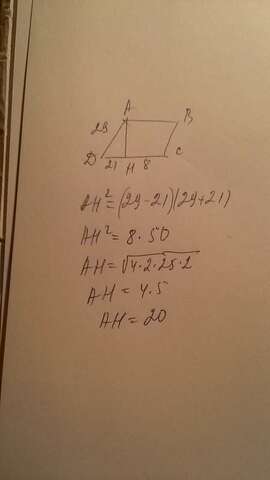 A
B
29
D
21
H
8
C
AH²=(29-21)(29+21)
AH²=8·50
AH=√4·2·25·2
AH=4.5
AH=20